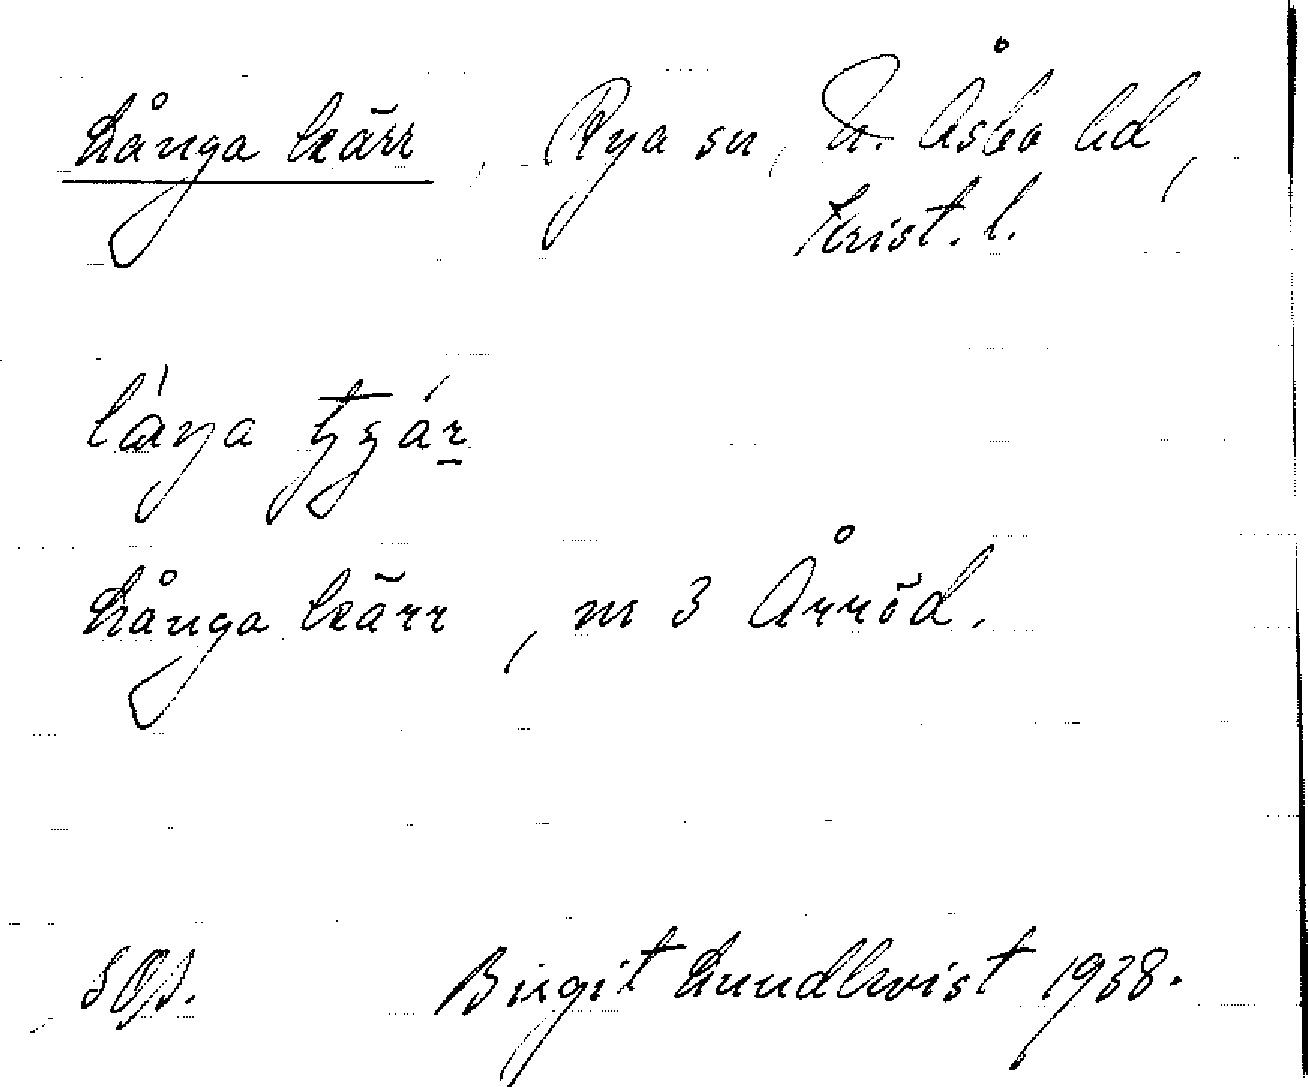 Långa kärr, Rya sn, N. Åsbo hd,
Krist. l.
láŋa
Långa kärr, m 3 Årröd.
Birgit Lundkvist 1938.